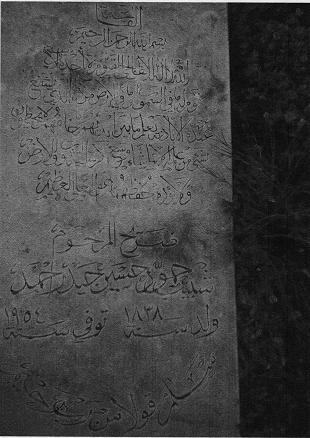 الفاتحة
بسم الله الرحمن الرحيم
الله لا إله إلا هو الحي القيوم لا تأخذه سنة ولا نوم
له ما في السموات وما في الأرض من ذا الذي يشفع
عنده إلا بإذنه يعلم ما بين أيديهم وما خلفهم ولا يحيطون
بشيء من علمه إلا بما شاء وسع كرسيه السموات والأرض
ولا يؤوده حفظهما وهو العلي العظيم
ضريح المرحوم
حسين حيدر احمد
ولد سنة ١٨٣٨ توفي سنة ١٩٥٤